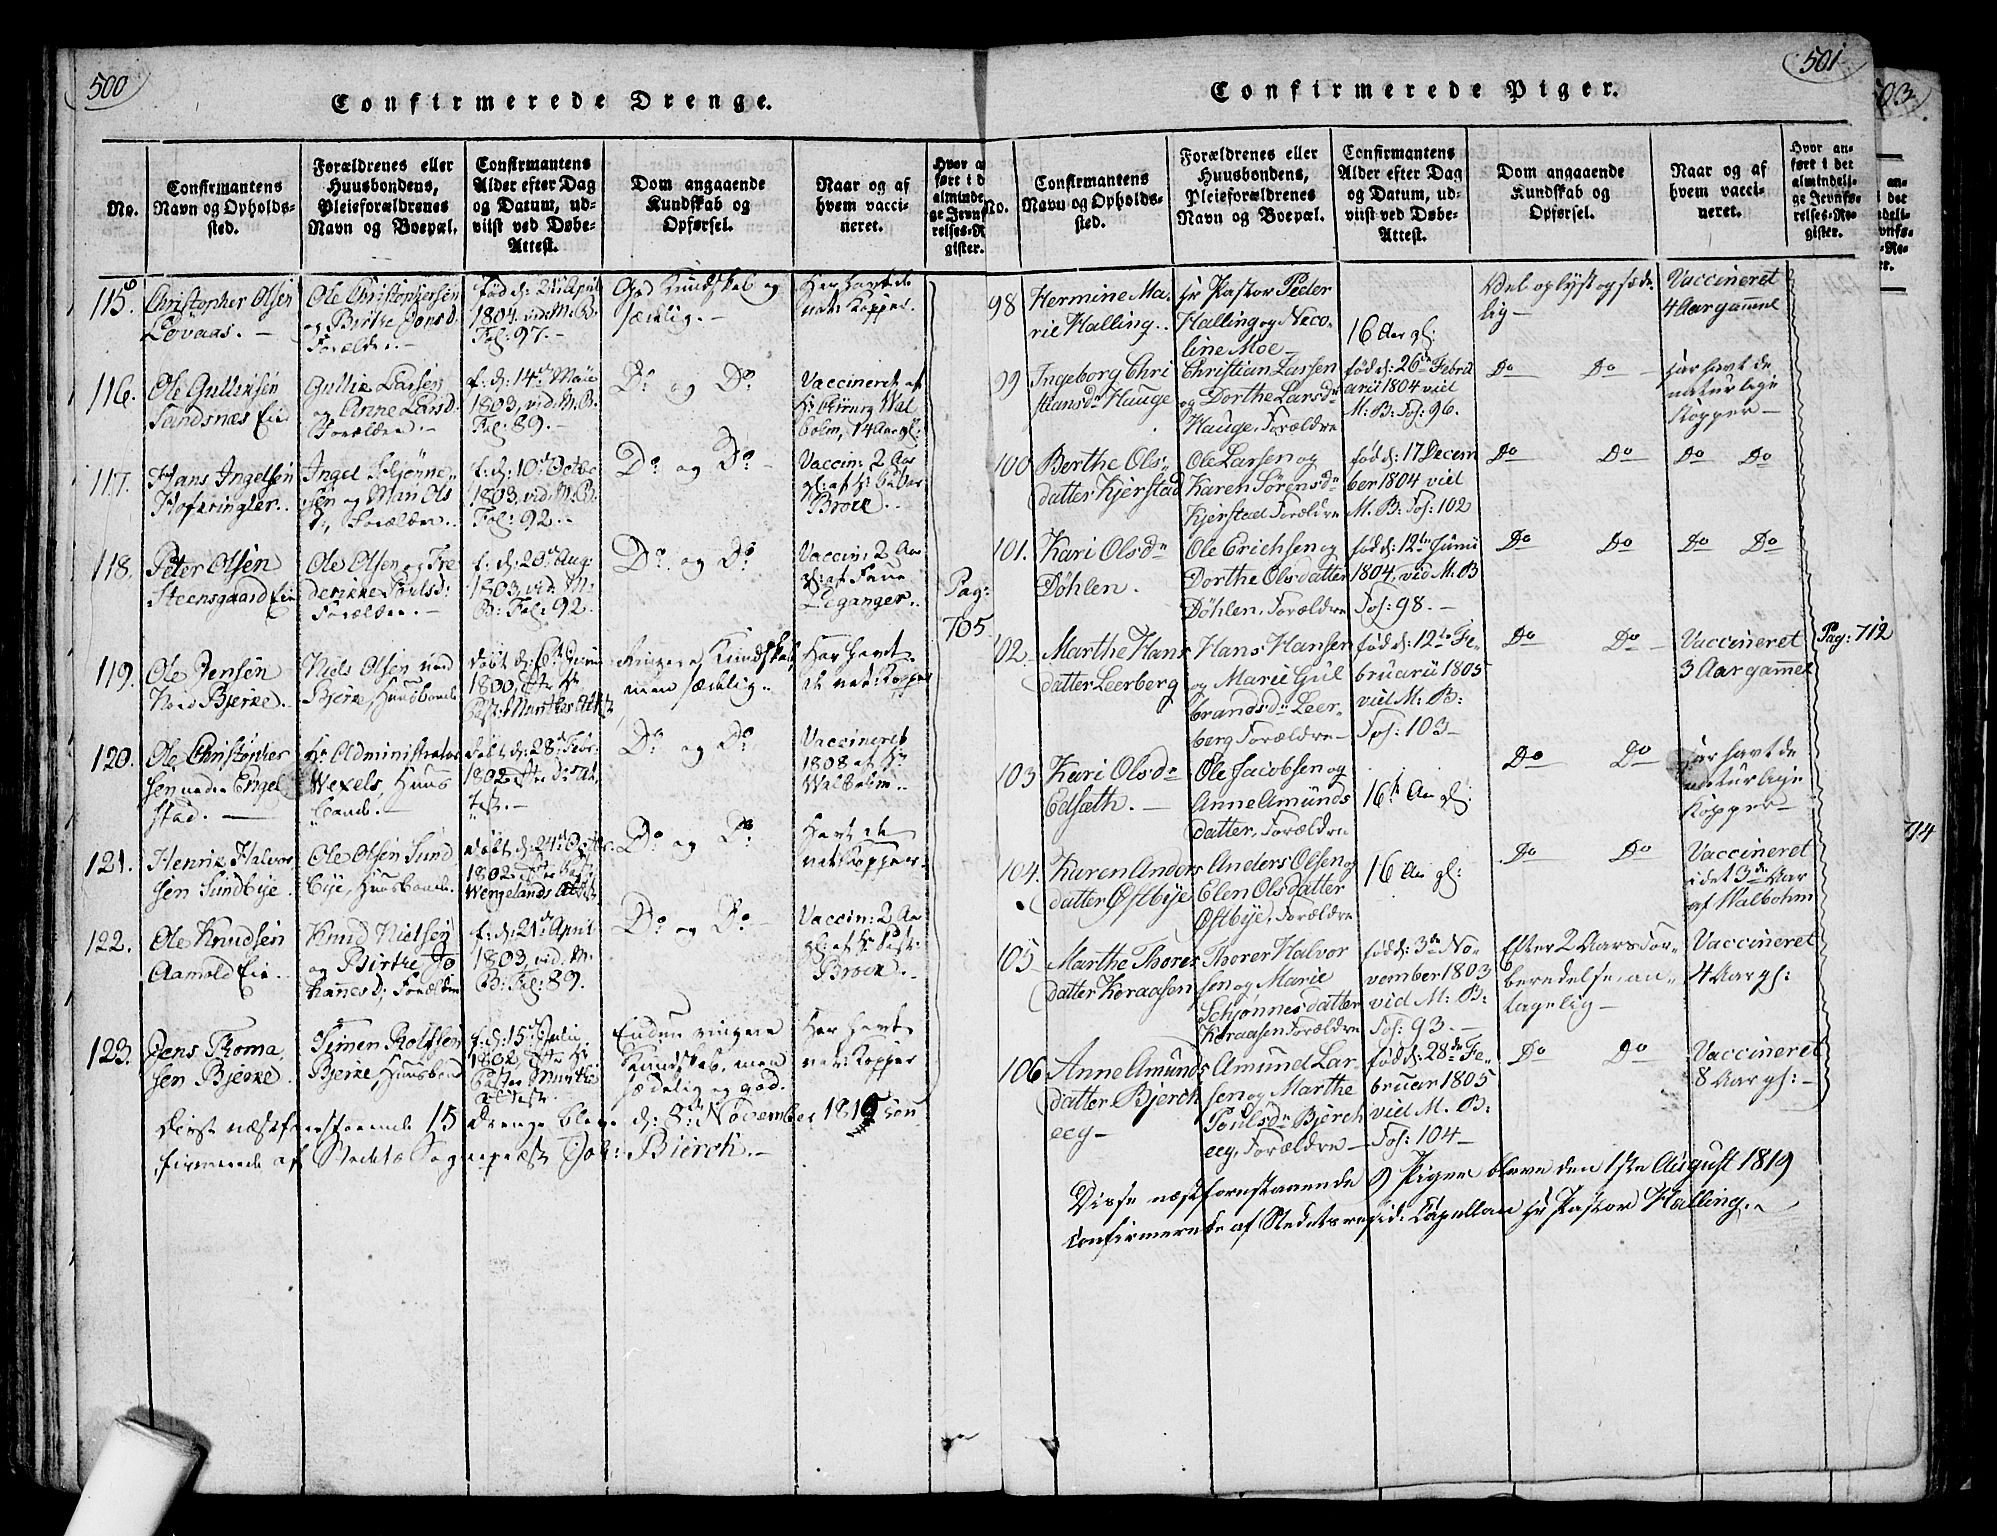 500
Confirmerede Drenge.
No.
Confirmantens Navn og Opholds-sted.
Forældrenes eller Huusbondens, Pleieforældrenes Navn og Boepæl.
Confirmantens Alder efter Dag og Datum, udviist ved Døbe-Attest.
Dom angaaende Kundskab og Opførsel.
Naar og af hvem vaccineret.
115.
Christopher Olsen
Lövaas.
Ole Christophersen
og Birthe Jonsd.
Forældre.
Fød d: 21de April
1804. vid: M. B.
Fol: 97.
God Kundskab og
sædelig.
Har havt de
nat: Kopper.
116.
Ole Gullixsen
Sandsnæs Eie.
Gullix Larsen
og Anne Larsd.
Forældre.
f: d: 14de Maie
1803, vid. M. B.
Fol: 89.
Do og Do
Vaccineret af
Hr Chirurg Wal
bolm, 14 Aar gl:
117.
Hans Ingelsen
Hofsringler.
Ingel
sen og Mari Ols
D., Forældre.
f: d: 10de Octbr
1803. vid. M. B.
Fol: 92.
Do og Do
Vaccin: 2 Aar
gl: af Hr
Brock.
118.
Peter Olsen
Steensgaard Eie
Ole Olsen og Fre
derikke Poulsd:
Forældre.
f: d: 20de Aug
1803, vid. M.
B: Fol: 92.
Do og Do
Vaccin: 2 Aar
gl: af
Leganger.
Pag:
705.
119.
Ole Jensen
Nord Bjerke.
Niels Olsen
Bjerke, Huusbonde
Ringere Kundskab,
men sædelig.
Har havt
de nat: Kopper
120.
Ole Christopher
sen
stad.
Hr. Administrator
Wexels, Huus
bonde.
født d: 28de Febr.
1802
Do og Do
Vaccineret
1808 af Hr
Walbolm.
121.
Henrik Halvor
sen Sundbye.
Ole Olsen Sund
bye, Huusbonde.
1802
Wengelands Attest
Do og Do
Havt de
nat: Kopper
122.
Ole Knudsen
Aamold Eie.
Knud Nielsen
og Birthe Jo
hannesd; Forældre
f: d: 21de April
1803. vid. M.
B: Fol: 89.
Do og Do
Vaccin: 2 Aar
gl: af Hr Past:
Brock.
123.
Jens Thoma
sen Bjerke.
Simen Rolfsen
Bjerke, Huusbond
f: d: 15de Julij,
1802
Endnu ringere
Kundskab, men
sædelig og god.
Har havt
nat: Kopper
Disse næstforestaaende 15 Drenge bleve d: 8de November 1819 con
firmerede af Stedets Sognepræst Joh: Bierch.
501
Confirmerede Piger.
No.
Confirmantens Navn og Opholds-sted.
Forældrenes eller Huusbondens, Pleieforældrenes Navn og Boepæl.
Confirmantens Alder efter Dag og Datum, udviist ved Døbe-Attest.
Dom angaaende Kundskab og Opførsel.
Naar og af hvem vaccineret.
Hvor anført i det almindelige Jevnførelses-Register.
98
Hermine Ma-
rie Halling.
Hr Pastor Peder
Halling og Neco-
line Moe
16 Aar gl:
Vel oplyst og sæde
lig
Vaccineret
4 Aar gammel
99
Ingeborg Chri
stiansdr Hauge
Christian Larsen
og Dorthe Larsdr
Hauge, Forældre
fød d: 26de Febru
arii 1804 vid
M: B: Fol: 96.
Do Do
har havt de
naturlige
Kopper
100
Berthe Ols-
datter Kjerstad
Ole Larsen og
Karen Sørensdr
Kjerstad Forældre
fød d: 17 Decem
ber 1804 vid
M. B: Fol: 102
Do Do Do Do
101.
Kari Olsdr
Döhlen.
Ole Erichsen og
Dorthe Olsdatter
Döhlen, Forældre
fød d: 12te Junii
1804, vid M. B
Fol: 98.
Do Do Do Do
102
Marthe Hans
datter Leerberg
Hans Hansen
og Marie Gul
brandsdr Leer-
berg Forældre
fød d: 12te Fe-
bruarii 1805
vid M. B:
Fol: 103
Do Do
Vaccineret
3 Aar gammel
Pag: 712
103
Kari Olsdr
Edsæth.
Ole Jacobsen og
Anne Amunds
datter, Forældre
16 Aar gl:
Do Do
har havt de
naturlige
Kopper
104.
Karen Anders
datter Østbye
Anders Olsen og
Elen Olsdatter
Østbye, Forældre
16 Aar gl:
Do Do
Vaccineret
i det 3de Aar
af Walbohm
105
Marthe Thorer
datter Koraasen
Thorer Halvor
sen og Marie
Schjønnesdatter
Koraasen Forældre
fød d: 3de No-
vember 1803
vid M. B:
Fol: 93.
Efter 2 Aars For-
beredelse, an-
tagelig
Vaccineret
4 Aar gl:
106
Anne Amunds
datter Bjerch
eeg
Amund Lar-
sen og Marthe
Poulsdr Bjerch
eeg, Forældre
fød d: 28de Fe-
bruar 1805
vid M. B:
Fol: 104
Do Do
Vaccineret
8 Aar gl:
Disse næstforestaaende 9 Piger bleve den 1ste August 1819
confirmerede af Stedets resid: Capellan Hr Pastor Halling.